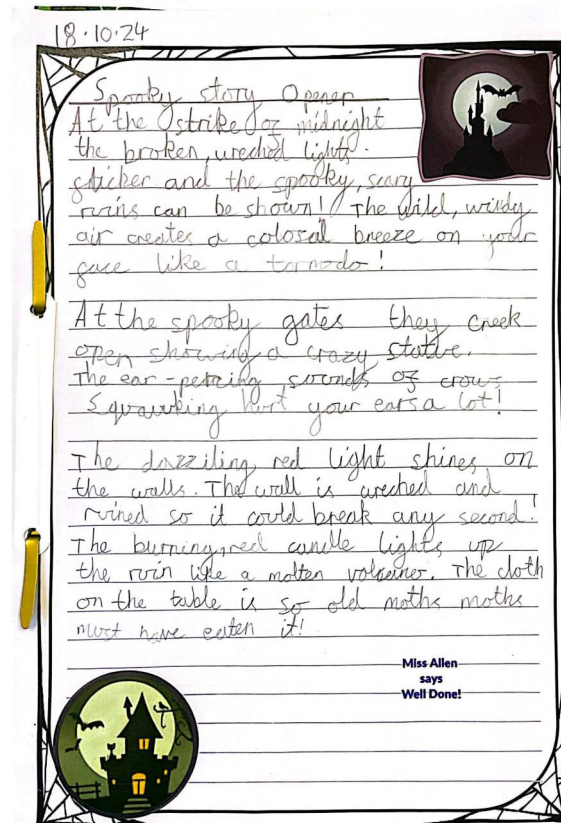 18.10.24
Spooky story Opener
At the strike of midnight
the broken, wreched lights.
flicker and the spooky, scary
ruins can be shown! The wild, windy
air creates a colosal breeze on your
face like a tornodo!
At the spooky gates they creek
open showing a crazy statue.
The ear-peircing, sounds of crows
Squawking hurt your ears a lot!
The dazziling red light shines on
the walls. The wall is wreched and
ruined so it could break any second!
The burning, red candle lights up
the ruin like a molten volcainer. The cloth
on the table is so old moths moths
must have eaten it!
Miss Allen
says
Well Done!